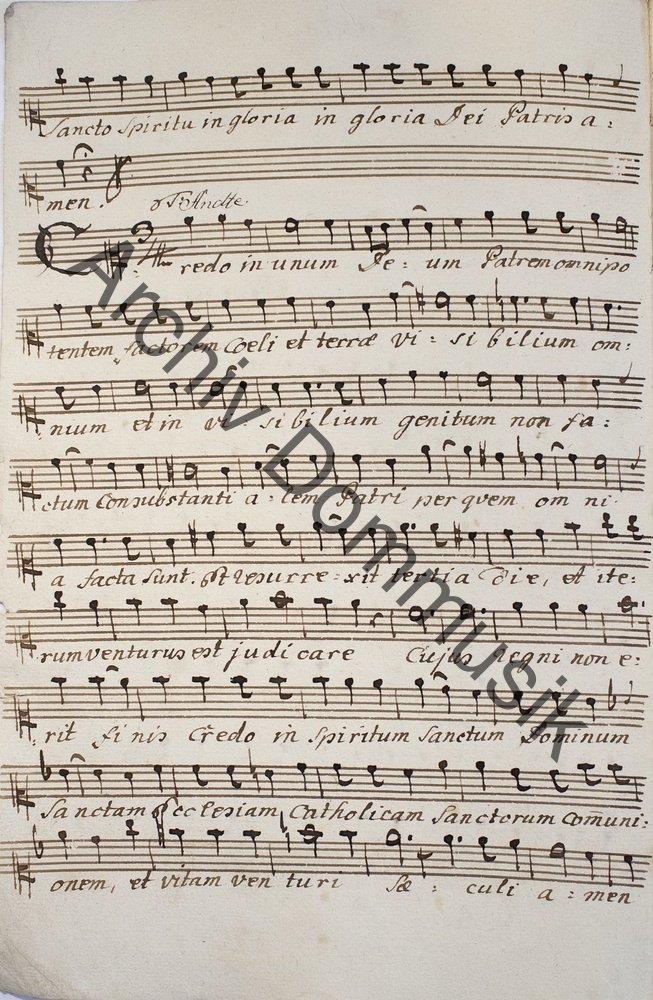 Sancto Spiritu in gloria in gloria Dei Patris a:
men. Andte
Credo in unum De: um Patrem omnipo
tentem factorem Coeli et terræ vi: si bilium om:
nium et in vi si bilium genitum non fa:
ctum Consubstanti a: lem Patri per quem om ni
a facta sunt. Et resurre: xit tertia Die, et ite:
rum venturus est judi care Cujus Regni non e:
rit finis Credo in Spiritum Sanctum Dominum
Sanctam Ecclesiam Catholicam Sanctorum Comuni:
onem, et vitam ven turi Sæ: culi a: men
Archiv Dommusik